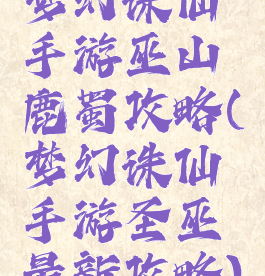 梦幻诛仙
手游巫山
鹿蜀攻略(
梦幻诛仙
手游圣巫
最新攻略)